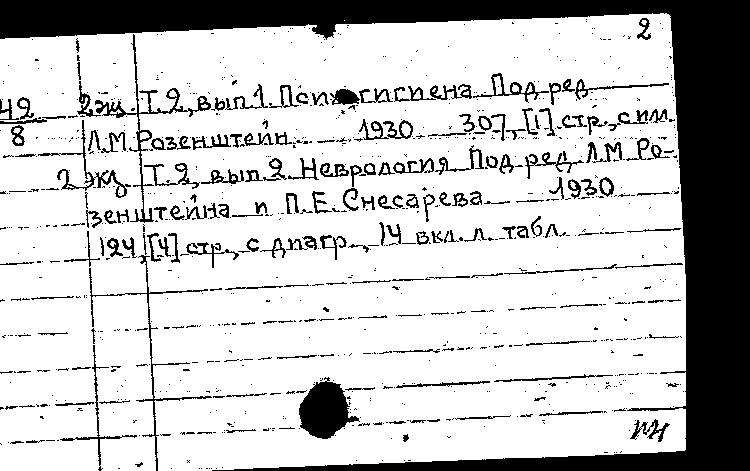 2
42 2 экз. Т.2, вып 1. Психогигиена Под ред
8 Л.М. Розенштейн. 1930 307, [1] стр., с илл.
2 экз Т.2, вып. 2. Неврология Под ред. Л.М Ро-
зенштейна и П.Е. Снесарева 1930
124, [4] стр., с диагр., 14 вкл. л. табл.